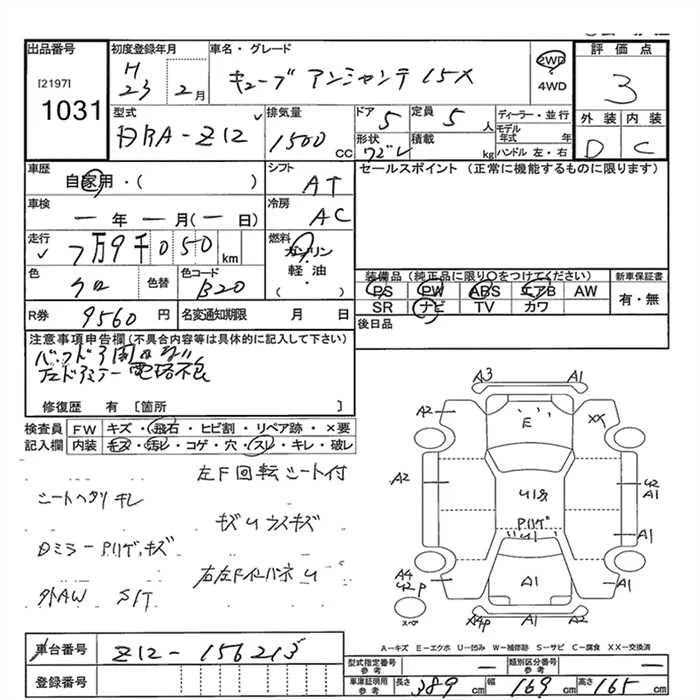 出品番号
[2197]
1031
初度登録年月
H
23 2月
車名・グレード
キューブ アンシャンテ 15X
2WD
4WD
評価点
3
型式
DBA-Z12
排気量
1500
CC
ドア
5
定員
5
人
ディーラー・並行
モデル
年式 年
形状
積載
kg
ハンドル 左・右
外装 内装
D C
車歴
自家用・( )
シフト
AT
セールスポイント (正常に機能するものに限ります)
車検
ー年ー月(ー日)
冷房
AC
走行
7万9千050
km
燃料
ガソリン
軽油
( )
色
クロ
色替
色コード
B20
装備品 (純正品に限り○をつけてください)
PS PW ABS エアB AW
SR ナビ TV カワ
新車保証書
有・無
R券
9560 円
名変通知期限 月 日
後日品
注意事項申告欄(不具合内容等は具体的に記入して下さい)
修復歴 有 [箇所 ]
検査員
記入欄
FW キズ・飛石・ヒビ割・リペア跡・×要
内装 キズ・汚レ・コゲ・穴・スレ・キレ・破レ
左F回転シート付
シートヘタリ キレ
キズU ウスキズ
Dミラー Pハゲ、キズ
外AW S/T
A3 A1
A2 E XX
A2 U1
42
A1
Pハゲ
U1
A1
A4
42P
A1
A1
スペア
A4P A1 A2
A-キズ E-エクボ U-凹み W-補修跡 S-サビ C-腐食 XX-交換済
車台番号
Z12-156213
登録番号
型式指定番号
参考
ー
類別区分番号
参考
ー
車庫証明用
参考
長さ 389 cm 幅 169 cm 高さ 165 cm